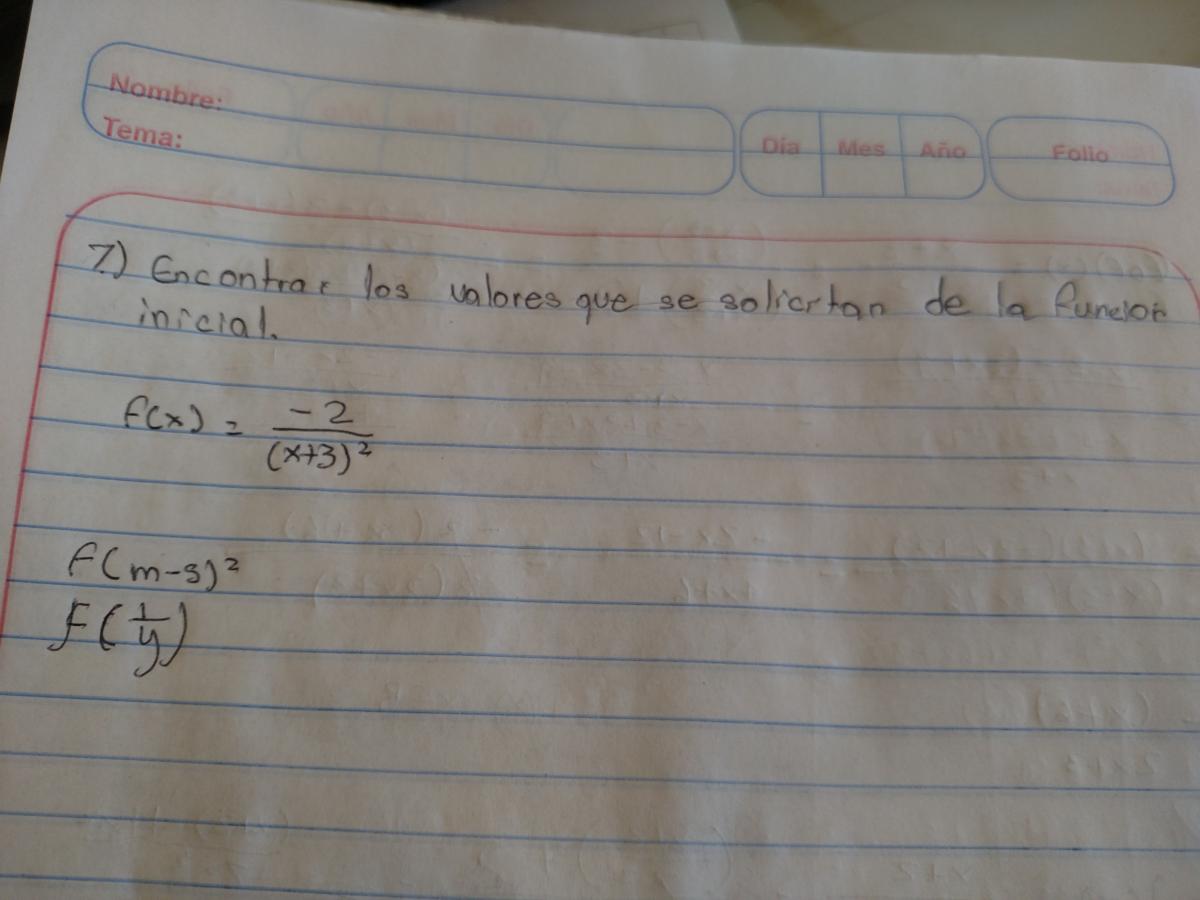 Nombre:
Tema:
Día Mes Año Folio
7.) Encontrar los valores que se solicitan de la función
inicial.
f(x) = -2/(x+3)²
f(m-s)²
F(1/y)